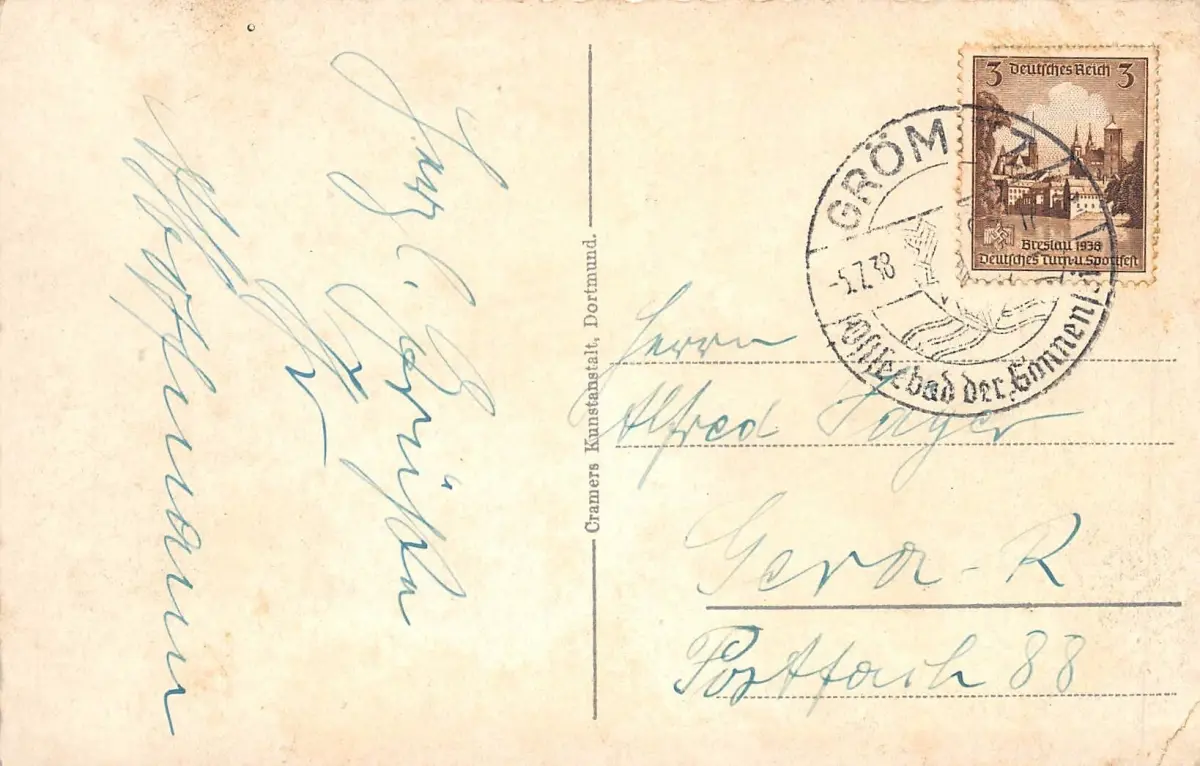 Herzl. Grüße
Ihr
Hoffmann
Cramers Kunstanstalt, Dortmund.
3 Deutsches Reich 3
Breslau 1938
Deutsches Turn-u. Sportfest
GRÖM
-5.7.38
Ostseebad der Sonnen
Herrn
Alfred Jäger
Gera-R
Postfach 88